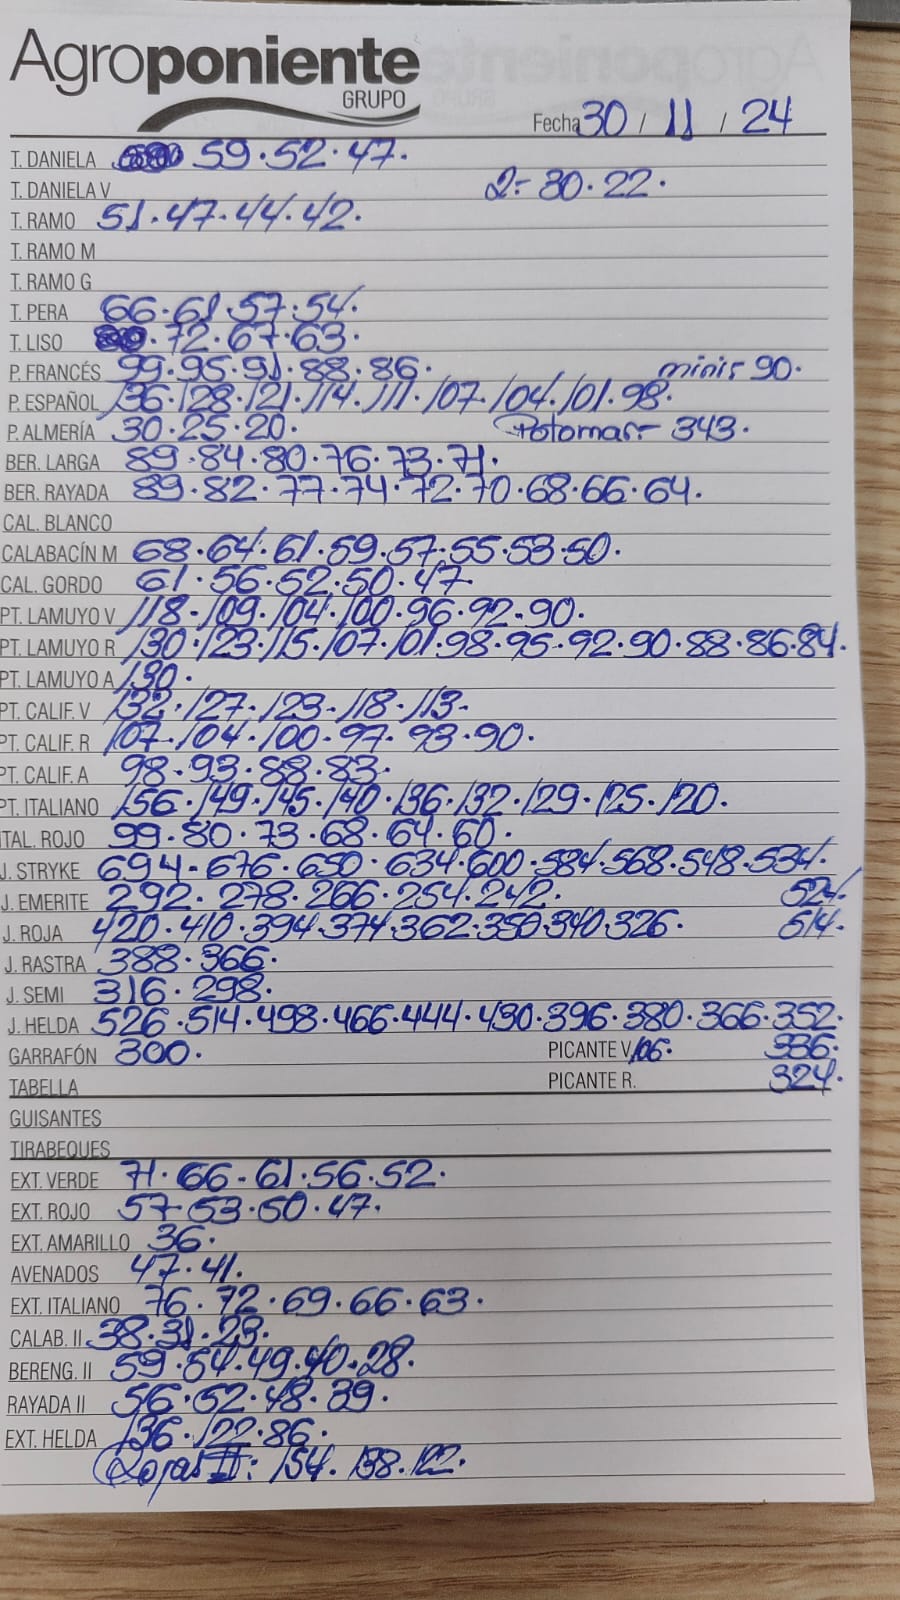 Agroponiente
GRUPO
Fecha 30 / 11 / 24
T. DANIELA 59.52.47.
T. DANELA V 2=30.22.
T. RAMO 51.47.44.42.
T. RAMO M
T. RAMO G
T. PERA 66.61.57.54.
T. LISO .72.67.63.
P. FRANCÉS 99.95.91.88.86. minis 90.
P. ESPAÑOL 136.128.121.114.111.107.104.101.98.
P. ALMERÍA 30.25.20. Potomar= 343.
BER. LARGA 89.84.80.76.73.71.
BER. RAYADA 89.82.77.74.72.70.68.66.64.
CAL. BLANCO
CALABACÍN M 68.64.61.59.57.55.53.50.
CAL. GORDO 61.56.52.50.47.
PT. LAMUYO V 118.109.104.100.96.92.90.
PT. LAMUYO R 130.123.115.107.101.98.95.92.90.88.86.84.
PT. LAMUYO A 130.
PT. CALIF. V 132.127.123.118.113.
PT. CALIF. R 107.104.100.97.93.90.
PT. CALIF. A 98.93.88.83.
PT. ITALIANO 156.149.145.140.136.132.129.125.120.
ITAL. ROJO 99.80.73.68.64.60.
J. STRYKE 694.676.650.634.600.584.568.548.534.
J. EMERITE 292.278.266.254.242. 524.
J. ROJA 420.410.394.374.362.350.340.326. 514.
J. RASTRA 388.366.
J. SEMI 316.298.
J. HELDA 526.514.498.466.444.430.396.380.366.352.
GARRAFÓN 300. PICANTE V. 106. 336.
TABELLA PICANTE R. 324.
GUISANTES
TIRABEQUES
EXT. VERDE 71.66.61.56.52.
EXT. ROJO 57.53.50.47.
EXT. AMARILLO 36.
AVENADOS 47.41.
EXT. ITALIANO 76.72.69.66.63.
CALAB. II 38.31.23.
BERENG. II 59.54.49.40.28.
RAYADA II 56.52.48.39.
EXT. HELDA 136.122.86.
Rojas II: 154.138.122.